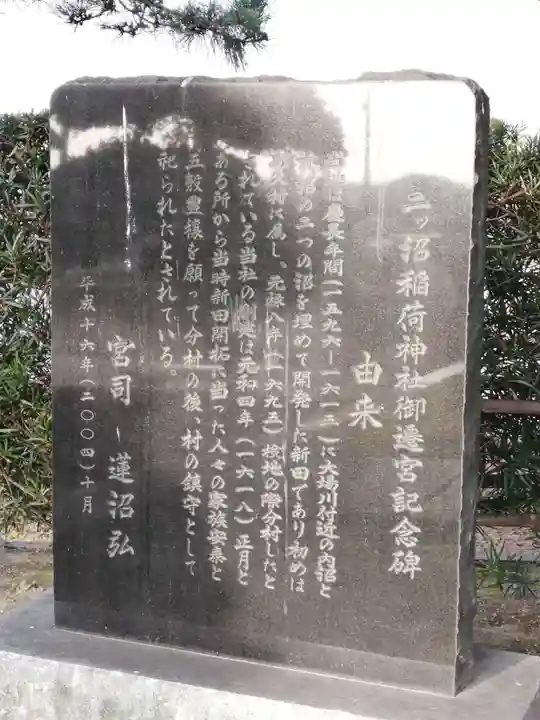 二ッ沼稲荷神社御遷宮記念碑
由来
慶長年間(一五九六ー一六一三)に大場川付近の内沼と
沼の二つの沼を埋めて開発した新田であり初めは
村に属し、元禄八年(一六九五)検地の際分村したと
されている当社の創建は元和四年(一六一八)正月と
ある所から当時新田開拓に当った人々の家族安泰と
五穀豊穣を願って分村の後、村の鎮守として
祀られたとされている。
平成十六年(二〇〇四)十月
宮司 蓮沼弘